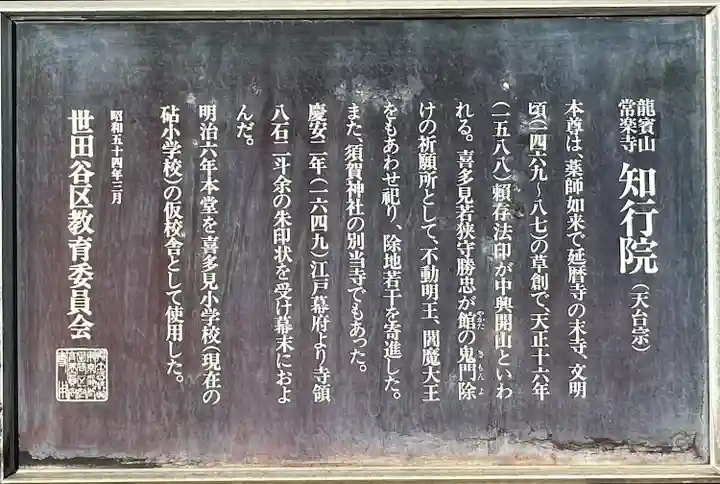 龍寶山
常楽寺
知行院(天台宗)
本尊は、薬師如来で延暦寺の末寺、文明
頃(一四六九〜八七)の草創で、天正十六年
(一五八八)頼存法印が中興開山といわ
れる。喜多見若狭守勝忠が館の鬼門除
やかた
きもんよ
けの祈願所として、不動明王、閻魔大王
をもあわせ祀り、除地若干を寄進した。
また、須賀神社の別当寺でもあった。
慶安二年(一六四九)江戸幕府より寺領
八石二斗余の朱印状を受け幕末におよ
んだ。
明治六年本堂を喜多見小学校(現在の
砧小学校)の仮校舎として使用した。
昭和五十四年三月
世田谷区教育委員会